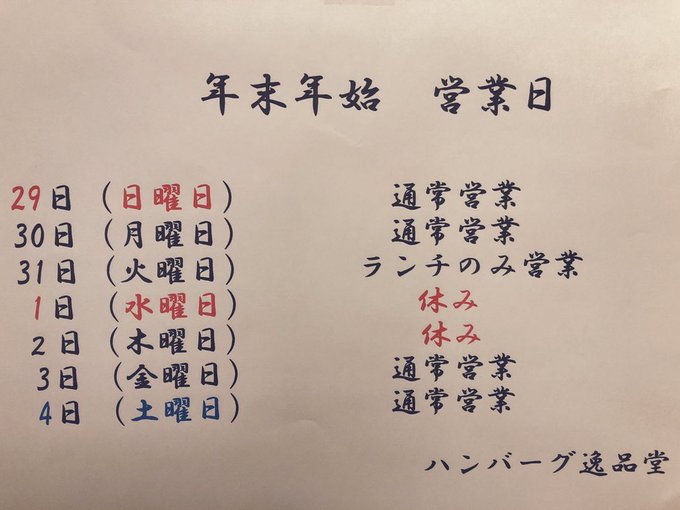 年末年始　営業日
29日（日曜日）　通常営業
30日（月曜日）　通常営業
31日（火曜日）　ランチのみ営業
1日（水曜日）　休み
2日（木曜日）　休み
3日（金曜日）　通常営業
4日（土曜日）　通常営業
ハンバーグ逸品堂